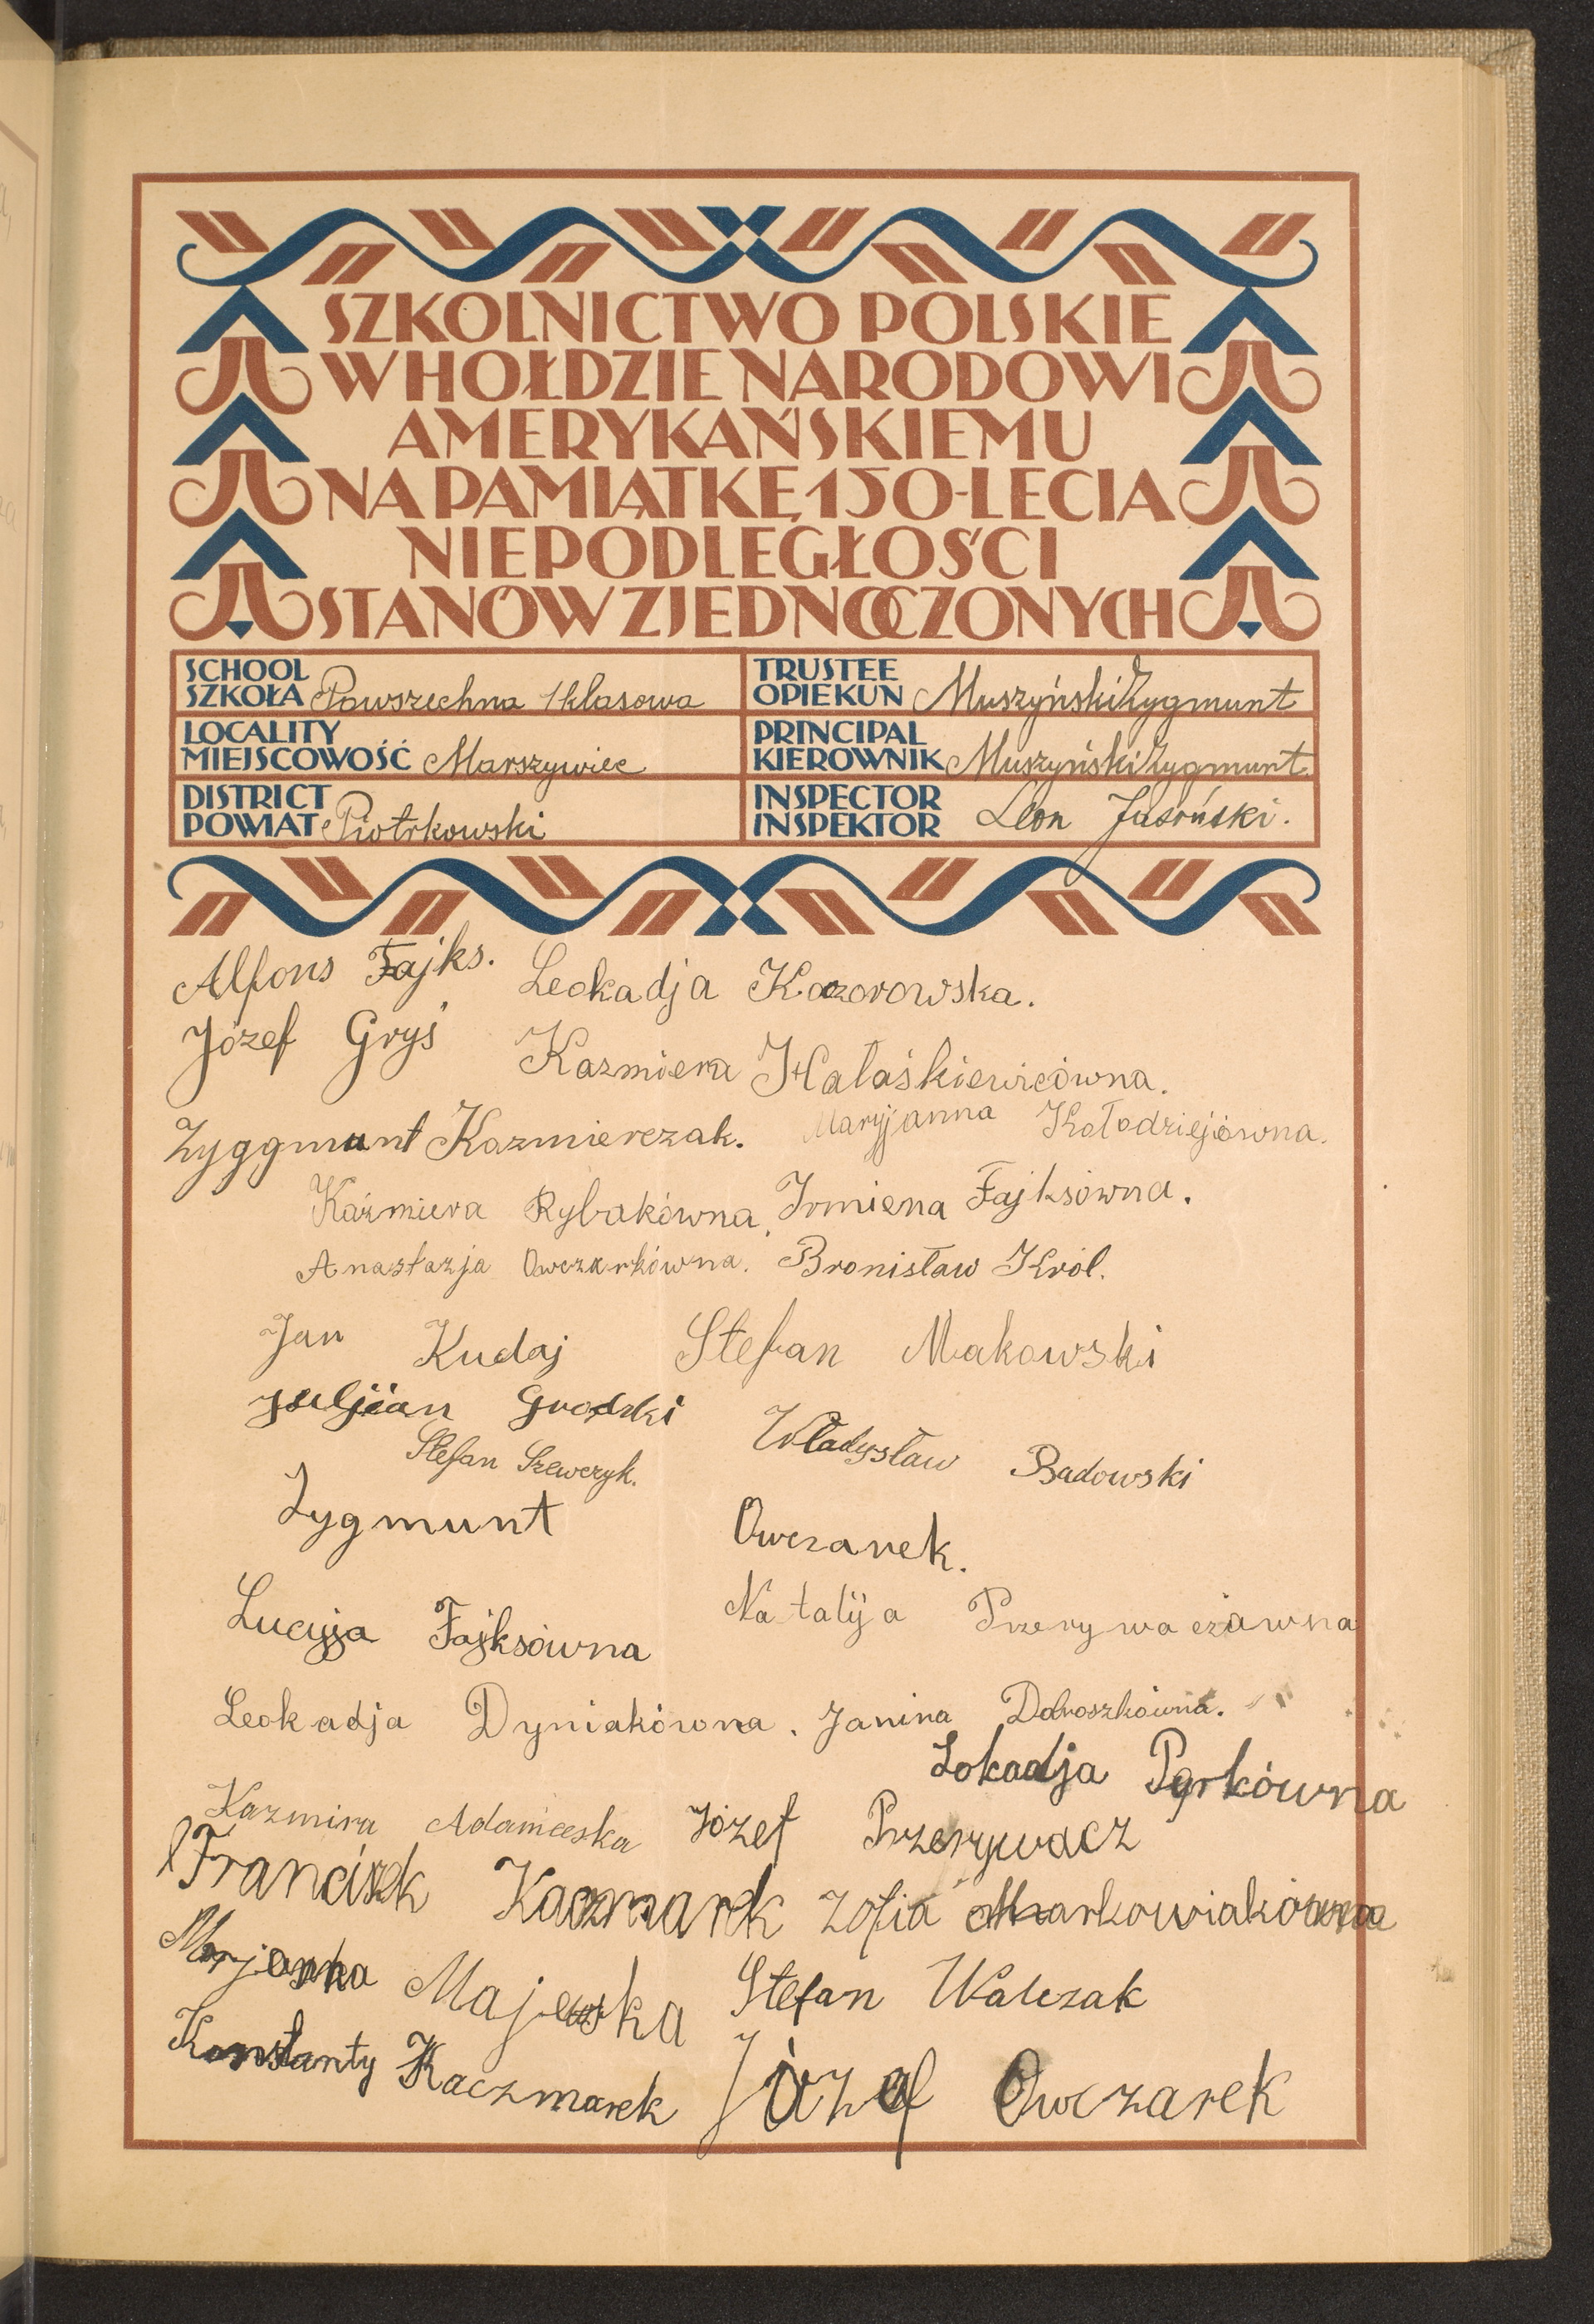 SZKOLNICTWO POLSKIE
W HOŁDZIE NARODOWI
AMERYKAŃSKIEMU
NA PAMIĄTKĘ 150-LECIA
NIEPODLEGŁOŚCI
STANÓW ZJEDNOCZONYCH
SCHOOL
SZKOŁA Powszechna 1 klasowa
TRUSTEE
OPIEKUN Muszyński Zygmunt
LOCALITY
MIEJSCOWOŚĆ Marszywiec
PRINCIPAL
KIEROWNIK Muszyński Zygmunt
DISTRICT
POWIAT Piotrkowski
INSPECTOR
INSPEKTOR Leon
Alfons Fajks. Leokadja Kaczorowska.
Józef Gryś Kazmiera Hałaśkiewicówna.
Zyggmunt Kazmierczak. Maryjanna Kołodziejówna.
Kaźmiera Rybakówna, Irmiena Fajksówna.
Anastazja Owczarkówna. Bronisław Król.
Jan Kudaj Stefan Makowski
Juljian Grodzki Władysław Badowski
Stefan Szewczyk.
Zygmunt Owczarek.
Lucyja Fajksówna Natalija
Leokadja Dyniakówna. Janina Dobroszkówna.
Lokadja Pyrkówna
Kazmira Józef Przerywacz
Franciszek Kaczmarek Zofia Markowiakówna
Marjanna Majewska Stefan Walczak
Konstanty Kaczmarek Józef Owczarek